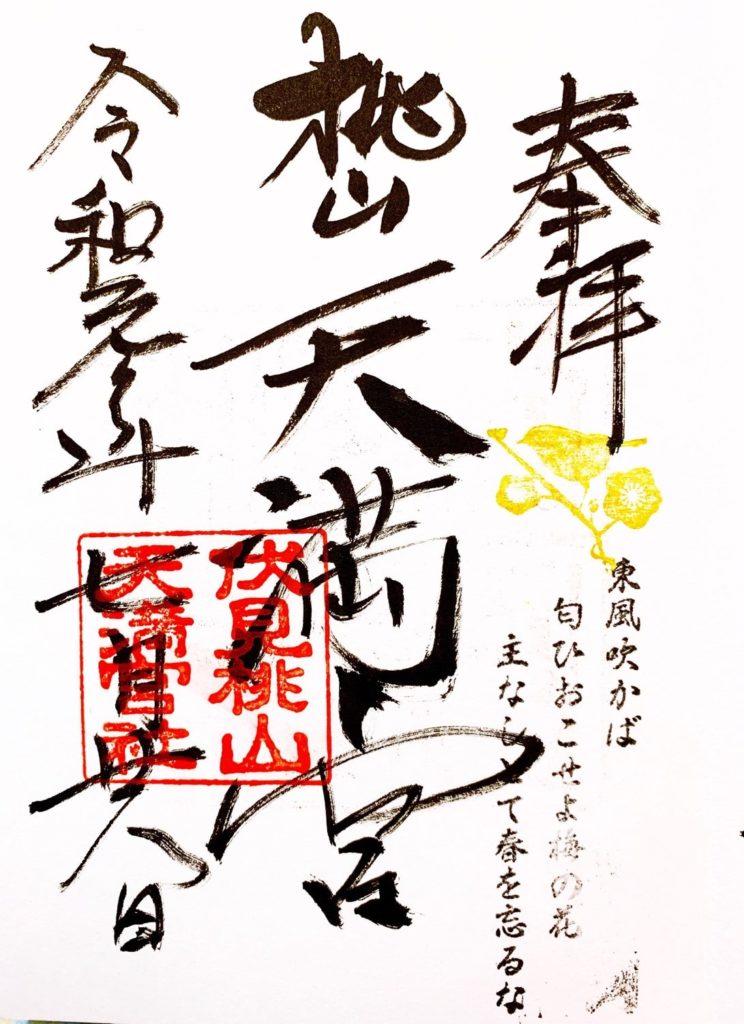 奉拝
東風吹かば
匂ひおこせよ梅の花
主なしとて春を忘るな
桃山天満宮
伏見桃山
天満宮社
令和元年七月廿八日